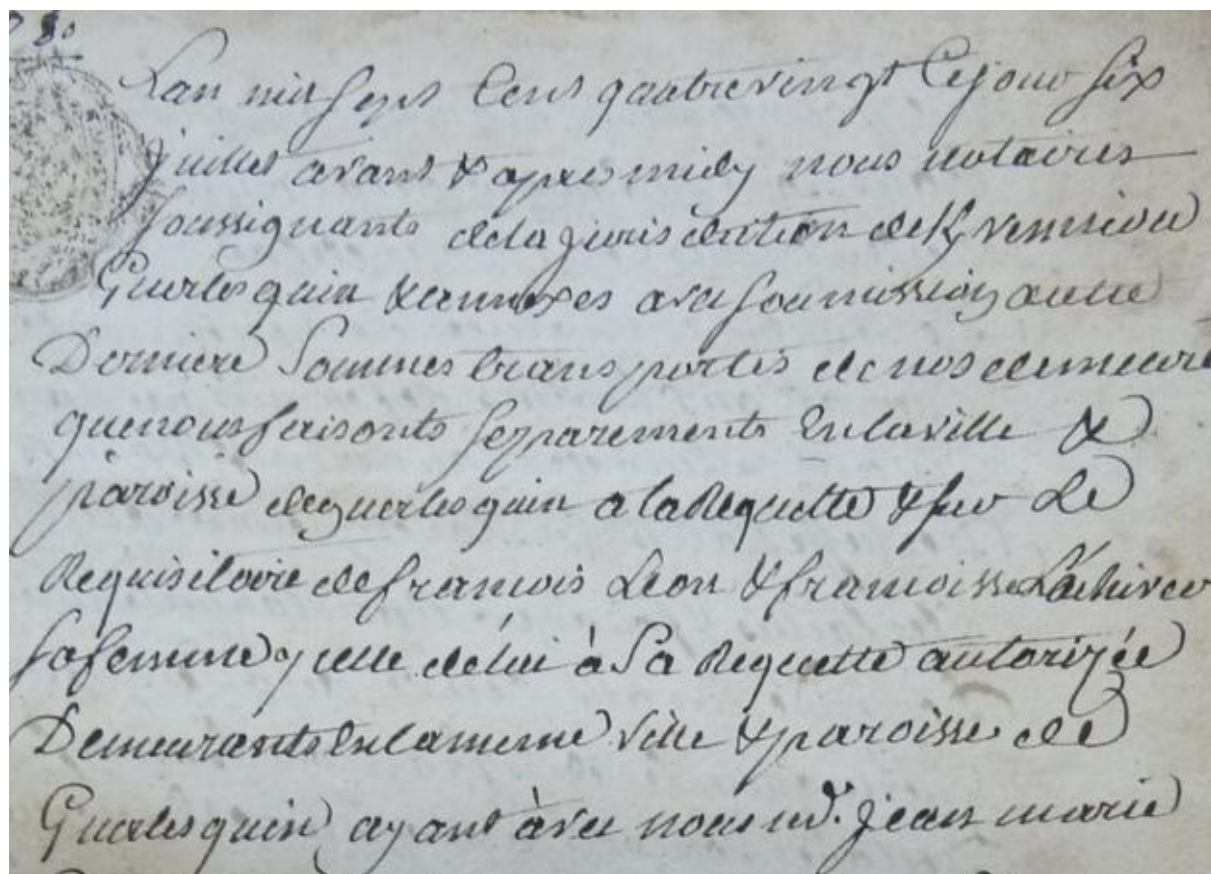 80
Lan mil sept Cens quatrevingt Cejour six
juillet avant & apres midy nous notaires
soussignants dela jurisdiction de K/
Guerlesquin & annexes avec soumission a cette
Derniere Sommes transportés de nos demeure
que nous faisonts separements En la ville &
paroisse de guerlesquin a la Requette & sur Le
Requisitoire de francois Leon & francoisse
sa femme y celle de lui à Sa Requette autorizée
Demeurants En la meme ville & paroisse de
Guerlesquin ayant avec nous nd. jean marie